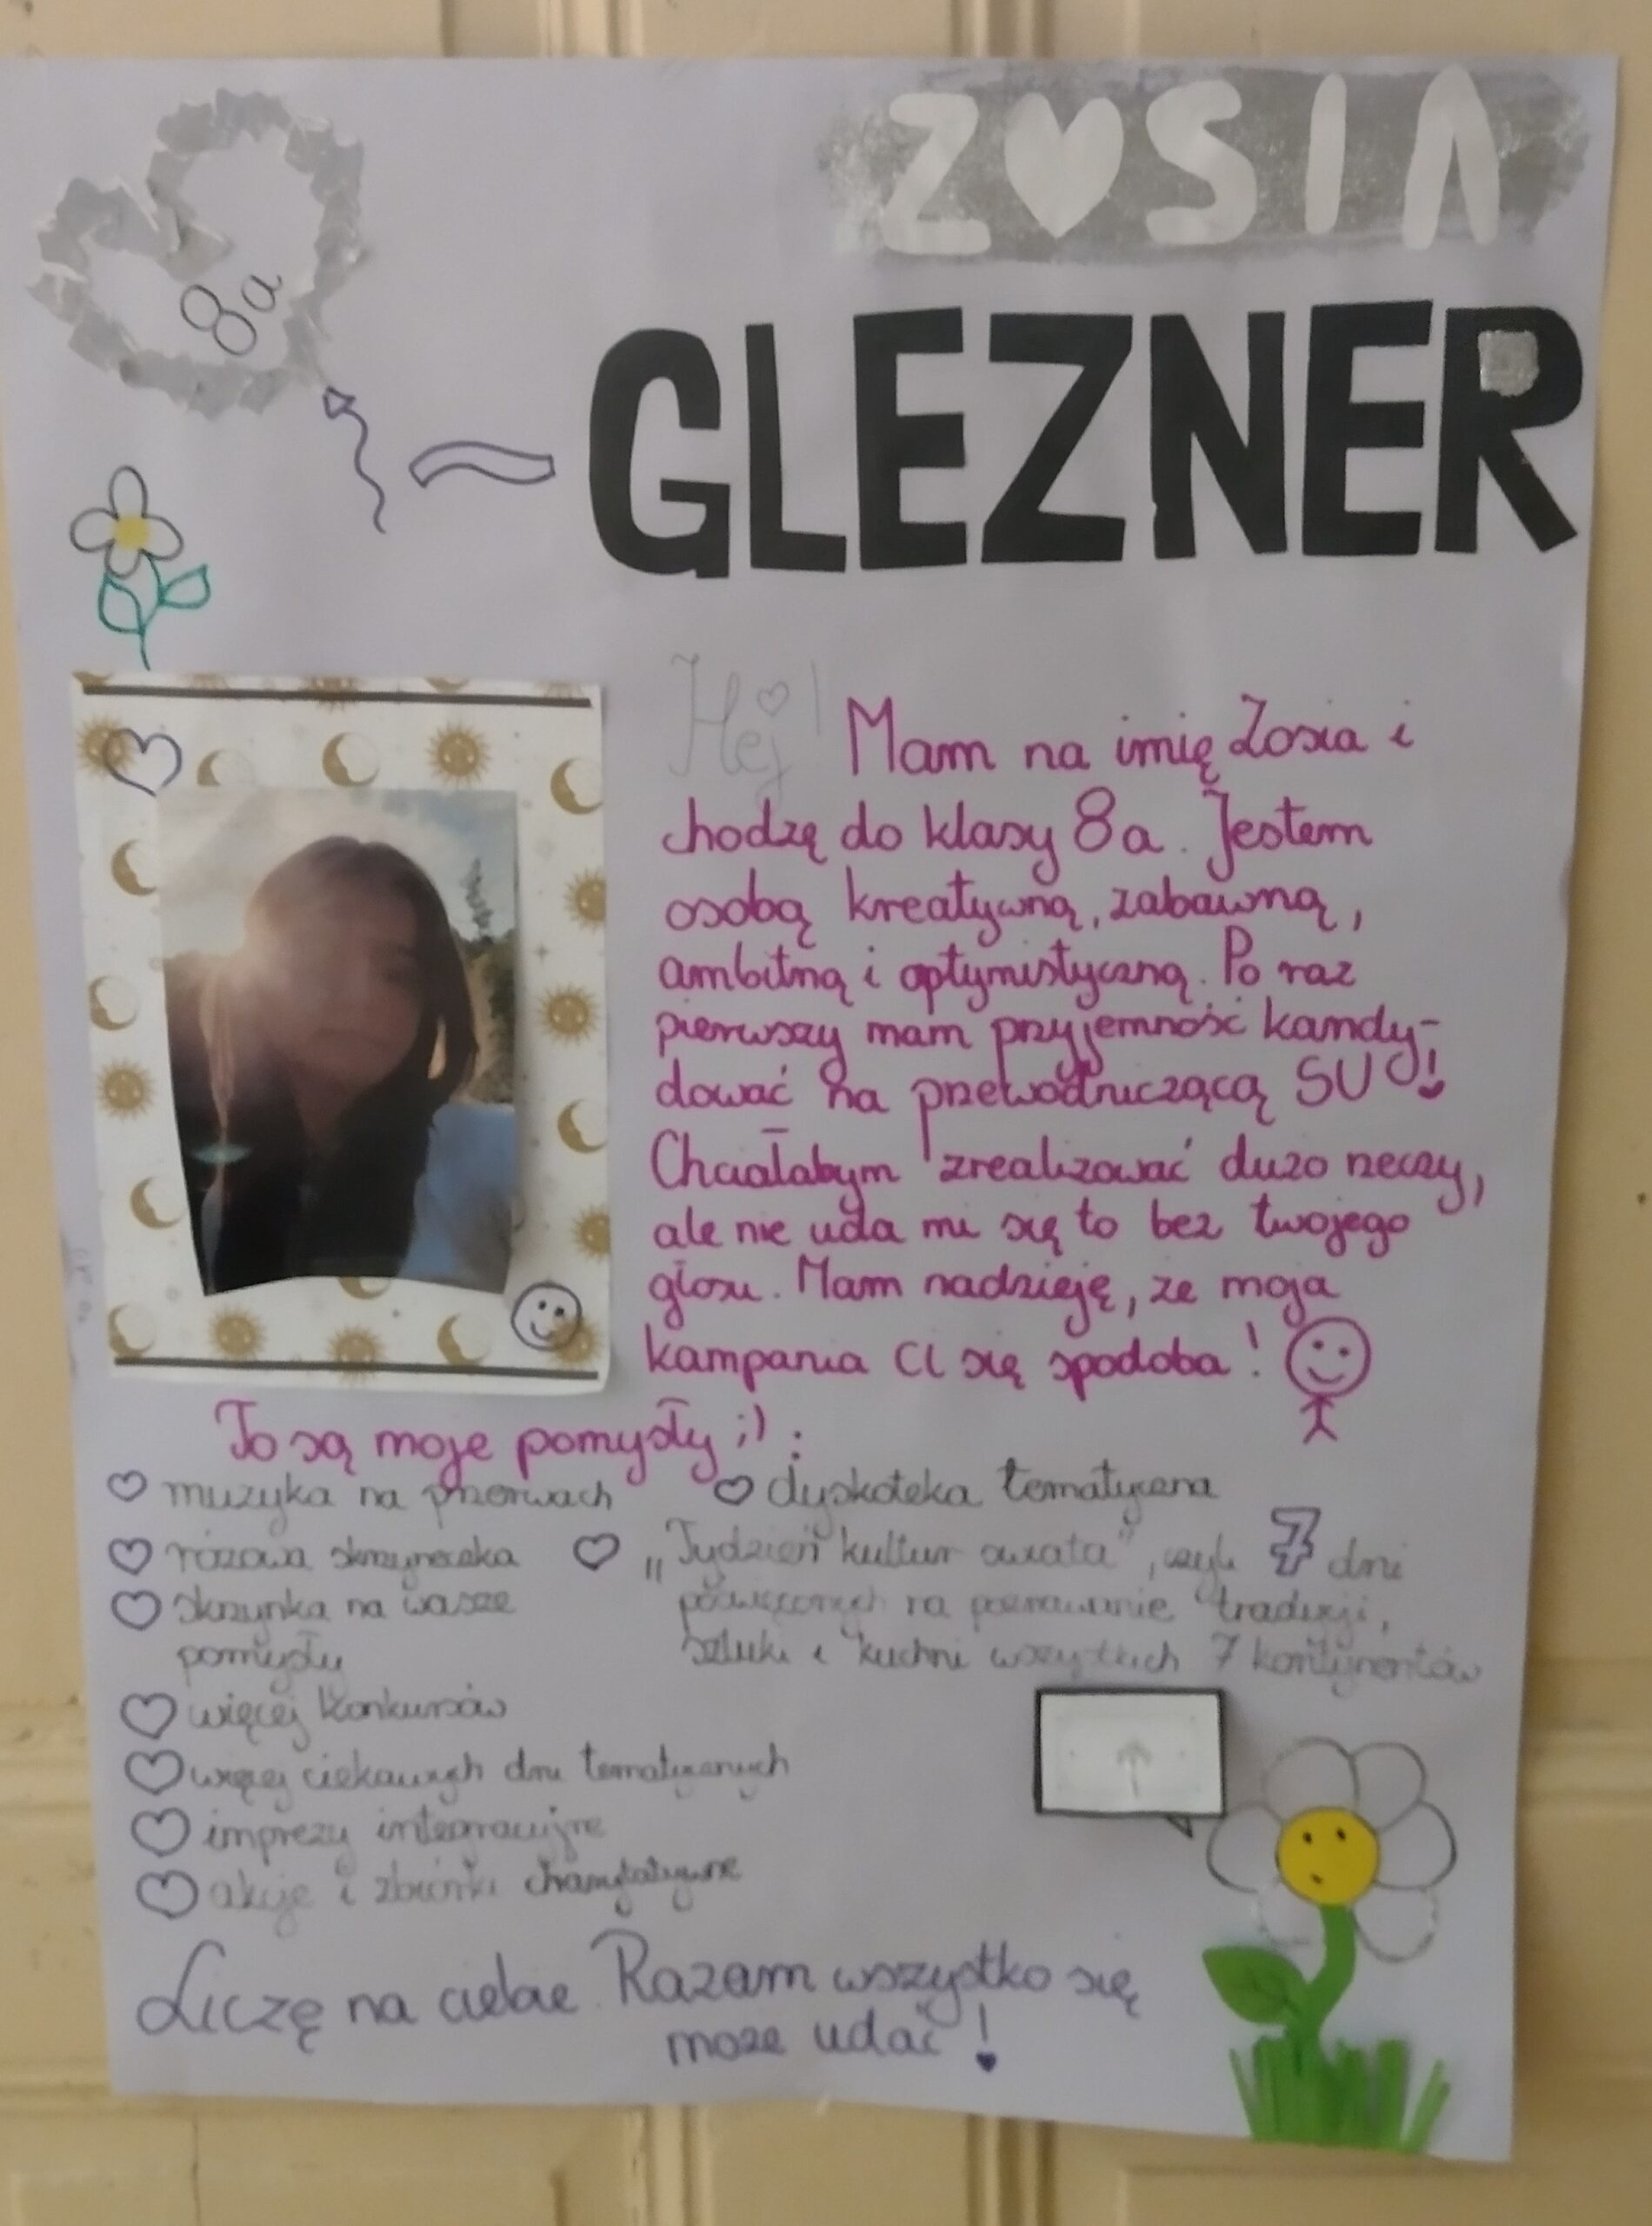 8a
ZOSIA
GLEZNER
Hej! Mam na imię Zosia i
chodzę do klasy 8a. Jestem
osobą kreatywną, zabawną,
ambitną i optymistyczną. Po raz
pierwszy mam przyjemność kandy-
dować na przewodniczącą SU!
Chciałabym zrealizować dużo rzeczy,
ale nie uda mi się to bez twojego
głosu. Mam nadzieję, że moja
kampania Ci się spodoba!
To są moje pomysły ;) :
muzyka na przerwach
różowa skrzyneczka
skrzynka na wasze
pomysły
więcej konkursów
więcej ciekawych dni tematycznych
imprezy integracyjne
akcje i zbiórki charytatywne
dyskoteka tematyczna
„Tydzień kultur świata", czyli 7 dni
poświęconych na poznawanie tradycji,
sztuki i kuchni wszystkich 7 kontynentów
Liczę na ciebie. Razem wszystko się
może udać!